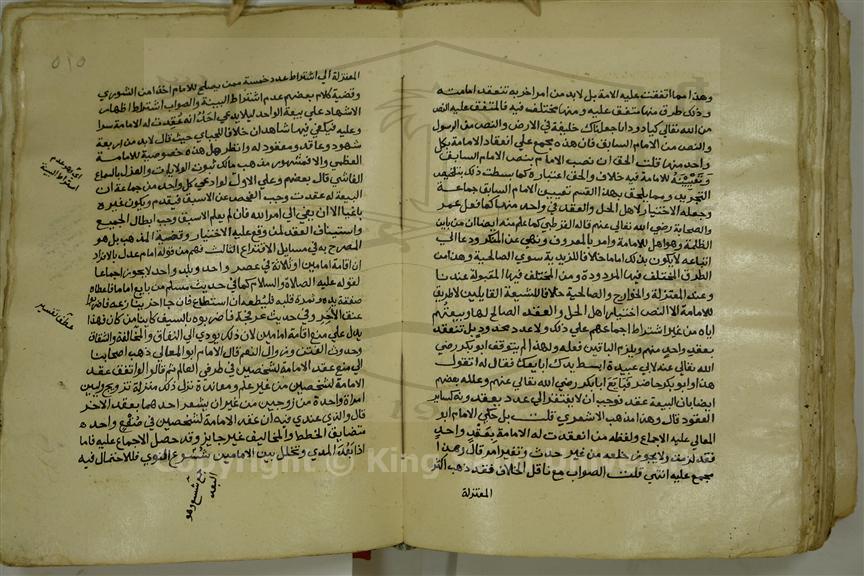 وهذا مما اتفقت عليه الامة بل لابد من امر اخر به تنعقد امامته
وذلك طرق منها متفق عليه ومنها مختلف فيه فالمتفق عليه النص
من الله تعالى كيا داود انا جعلناك خليفة في الارض والنص من الرسول
والنص من الامام السابق فان هذه مجمع على انعقاد الامامة بكل
واحد منها قلت الحق ان نصب الامام بنص الامام السابق
وتعيينه للامامة فيه خلاف والحق اعتباره كما بسطت ذلك بتلخيص
التجريد ومما يلحق بهذا القسم تعيين الامام السابق جماعة
وجعله الاختيار لاهل الحل والعقد في واحد منها كما فعل عمر
والصحابة رضي الله تعالى عنهم قاله القرطبي كما علم منه ايضا ان من باين
الظلمة وهو اهل للامامة وامر بالمعروف ونهى عن المنكر ودعا الى
اتباعه لا يكون بذلك اماما خلافا للزيدية سوى الصالحية وهذا من
الطرق المختلف فيها المردودة ومن المختلف فيها المقبولة عندنا
وعند المعتزلة والخوارج والصالحية خلافا للشيعة القايلين لا طريق
للامامة الا النص اختيار اهل الحل والعقد الصالح لها وبيعتهم
اياه من غير اشتراط اجماعهم على ذلك ولا عدد محدود بل تنعقد
بعقد واحد منهم ويلزم الباقين فعله ولهذا لم يتوقف ابو بكر رضي
الله تعالى عنه لابي عبيدة ابسط يدك ابايعك فقال له اتقول
هذا وابو بكر حاضر فبايع ابا بكر رضي الله تعالى عنهم وعلله بعضهم
ايضا بان البيعة عقد فوجب ان لا يفتقر الى عدد بعقدونه كساير
العقود قال وهذا مذهب الاشعري قلت بل حكى الامام ابو
المعالي عليه الاجماع ولفظه من انعقدت له الامامة بعقد واحد
فقد لزمت ولا يجوز خلعه من غير حدث وتغير امر قال وهذا
مجمع عليه انتهى قلت الصواب مع ناقل الخلاف فقد ذهب اكثر
المعتزلة
٥١٥
المعتزلة الى اشتراط عدد خمسة ممن يصلح للامام اخذا من الشورى
وقضية كلام بعضهم عدم اشتراط البينة والصواب اشتراط اظهار
الاشهاد على بيعة الواحد ليلا يدعي احد انه عقدت له الامامة سرا
وعليه فيكفي فيها شاهدان خلافا للجباي حيث قال لابد من اربعة
شهود وعاقد ومعقود له وانظر هل هذه خصوصية للامامة
العظمى والا فمشهور مذهب مالك ثبوت الولايات والعزل بالسماع
الفاشي قال بعضهم وعلى الاول لو ادعى كل واحد من جماعة ان
البيعة له عقدت وجب الفحص عن الاسبق فيقدم ويكون غيره
باغيا الا ان يفيء الى امر الله فان لم يعلم الاسبق وجب ابطال الجميع
واستيناف العقد لمن وقع عليه الاختيار وقضية المذهب بل هو
المصرح به في مسايل الاقتراع الثالث فهم من قوله امام عدل بالافراد
ان اقامة امامين او ثلاثة في عصر واحد وبلد واحد لا يجوز اجماعا
لقوله عليه الصلاة والسلام كما في حديث مسلم من بايع اماما فاعطاه
صفقة يده وثمرة قلبه فليطعه ان استطاع فان جا اخر ينازعه فاضربوا
عنق الاخر وفي حديث عرفجة فاضربوه بالسيف كاينا من كان فهذا
يدل على منع اقامة امامين لان ذلك يودي الى النفاق والمخالفة والشقاق
وحدوث الفتن وزوال النعم قال الامام ابو المعالي ذهب اصحابنا
الى منع عقد الامامة لشخصين في طرفي العالم ثم قالوا لو اتفق عقد
الامامة لشخصين من غير علم ومعاندة نزل ذلك منزلة تزويج وليين
امراة واحدة من زوجين من غير ان يشعر احدهما بعقد الاخر
قال والذي عندي فيه ان عقد الامامة لشخصين في صقع واحد
متضايق الخطط والمخاليف غير جايز وقد حصل الاجماع عليه فاما
اذا بعد المدى وتخلل بين الامامين شسوع النوى فللاحتمال فيه
اي بعدم
اشتراط البينة
عطف تفسير
جمع شسع وهو
البعد
Copyright © King